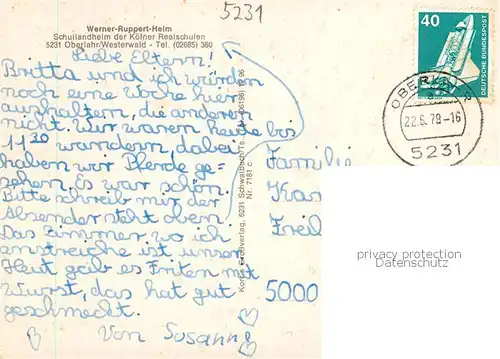 5231
Werner-Ruppert-Heim
Schullandheim der Kölner Realschulen
5231 Oberlahr/Westerwald - Tel. (02685) 360
Liebe Eltern!
Britta und ich würden
noch eine Woche hier
aushalten, die anderen
nicht. Wir waren heute bis
11 30 wandern, dabei
haben wir Pferde ge-
sehen. Es war schön.
Bitte schreib mir der
Absender steht oben.
Das Zimmer wo ich
anstreiche ist unser.
Heut gab es Friten mit
Wurst, das hat gut
geschmeckt.
Von Susann
6231 Schwalbach/Ts.
Nr. 7181 c
40
DEUTSCHE BUNDESPOST
OBERLAHR
22.6.78-16
5231
Familie
Kas
Freil
5000
privacy protection
Datenschutz